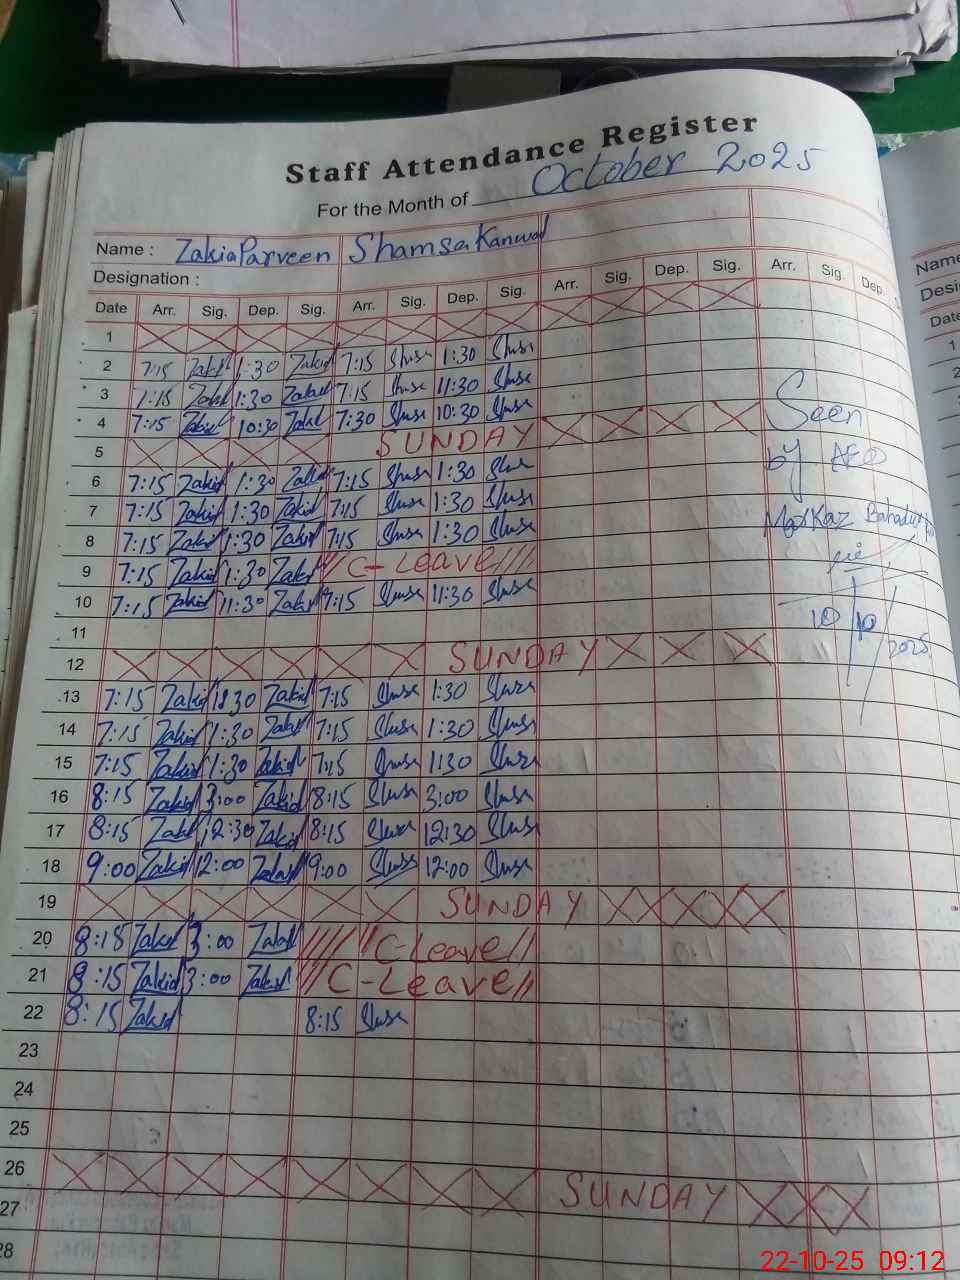 Staff Attendance Register
For the Month of October 2025
Name : Zakia Parveen Shamsa Kanwal
Designation :
Date Arr. Sig. Dep. Sig. Arr. Sig. Dep. Sig. Arr. Sig. Dep. Sig. Arr. Sig. Dep.
1
2 7:15 Zakia 1:30 Zakia 7:15 Shmsa 1:30 Shmsa
3 7:15 Zakia 1:30 Zakia 7:15 Shmsa 11:30 Shmsa
4 7:15 Zakia 10:30 Zakia 7:30 Shmsa 10:30 Shmsa
5 SUNDAY
6 7:15 Zakia 1:30 Zakia 7:15 Shmsa 1:30 Shmsa
7 7:15 Zakia 1:30 Zakia 7:15 Shmsa 1:30 Shmsa
8 7:15 Zakia 1:30 Zakia 7:15 Shmsa 1:30 Shmsa
9 7:15 Zakia 1:30 Zakia C-Leave
10 7:15 Zakia 11:30 Zakia 7:15 Shmsa 11:30 Shmsa
11
12 SUNDAY
13 7:15 Zakia Zakia 7:15 Shmsa 1:30 Shmsa
14 7:15 Zakia 1:30 Zakia 7:15 Shmsa 1:30 Shmsa
15 7:15 Zakia 1:30 Zakia 7:15 Shmsa 1:30 Shmsa
16 8:15 Zakia 3:00 Zakia 8:15 Shmsa 3:00 Shmsa
17 8:15 Zakia 12:30 Zakia 8:15 Shmsa 12:30 Shmsa
18 9:00 Zakia 12:00 Zakia 9:00 Shmsa 12:00 Shmsa
19 SUNDAY
20 8:15 Zakia 3:00 Zakia C-Leave
21 8:15 Zakia 3:00 Zakia C-Leave
22 8:15 Zakia 8:15 Shmsa
23
24
25
26 SUNDAY
27
28
Seen
by AEO
Markaz Bahadur
10/10/2025
Name
Desi
Date
1
2
22-10-25 09:12